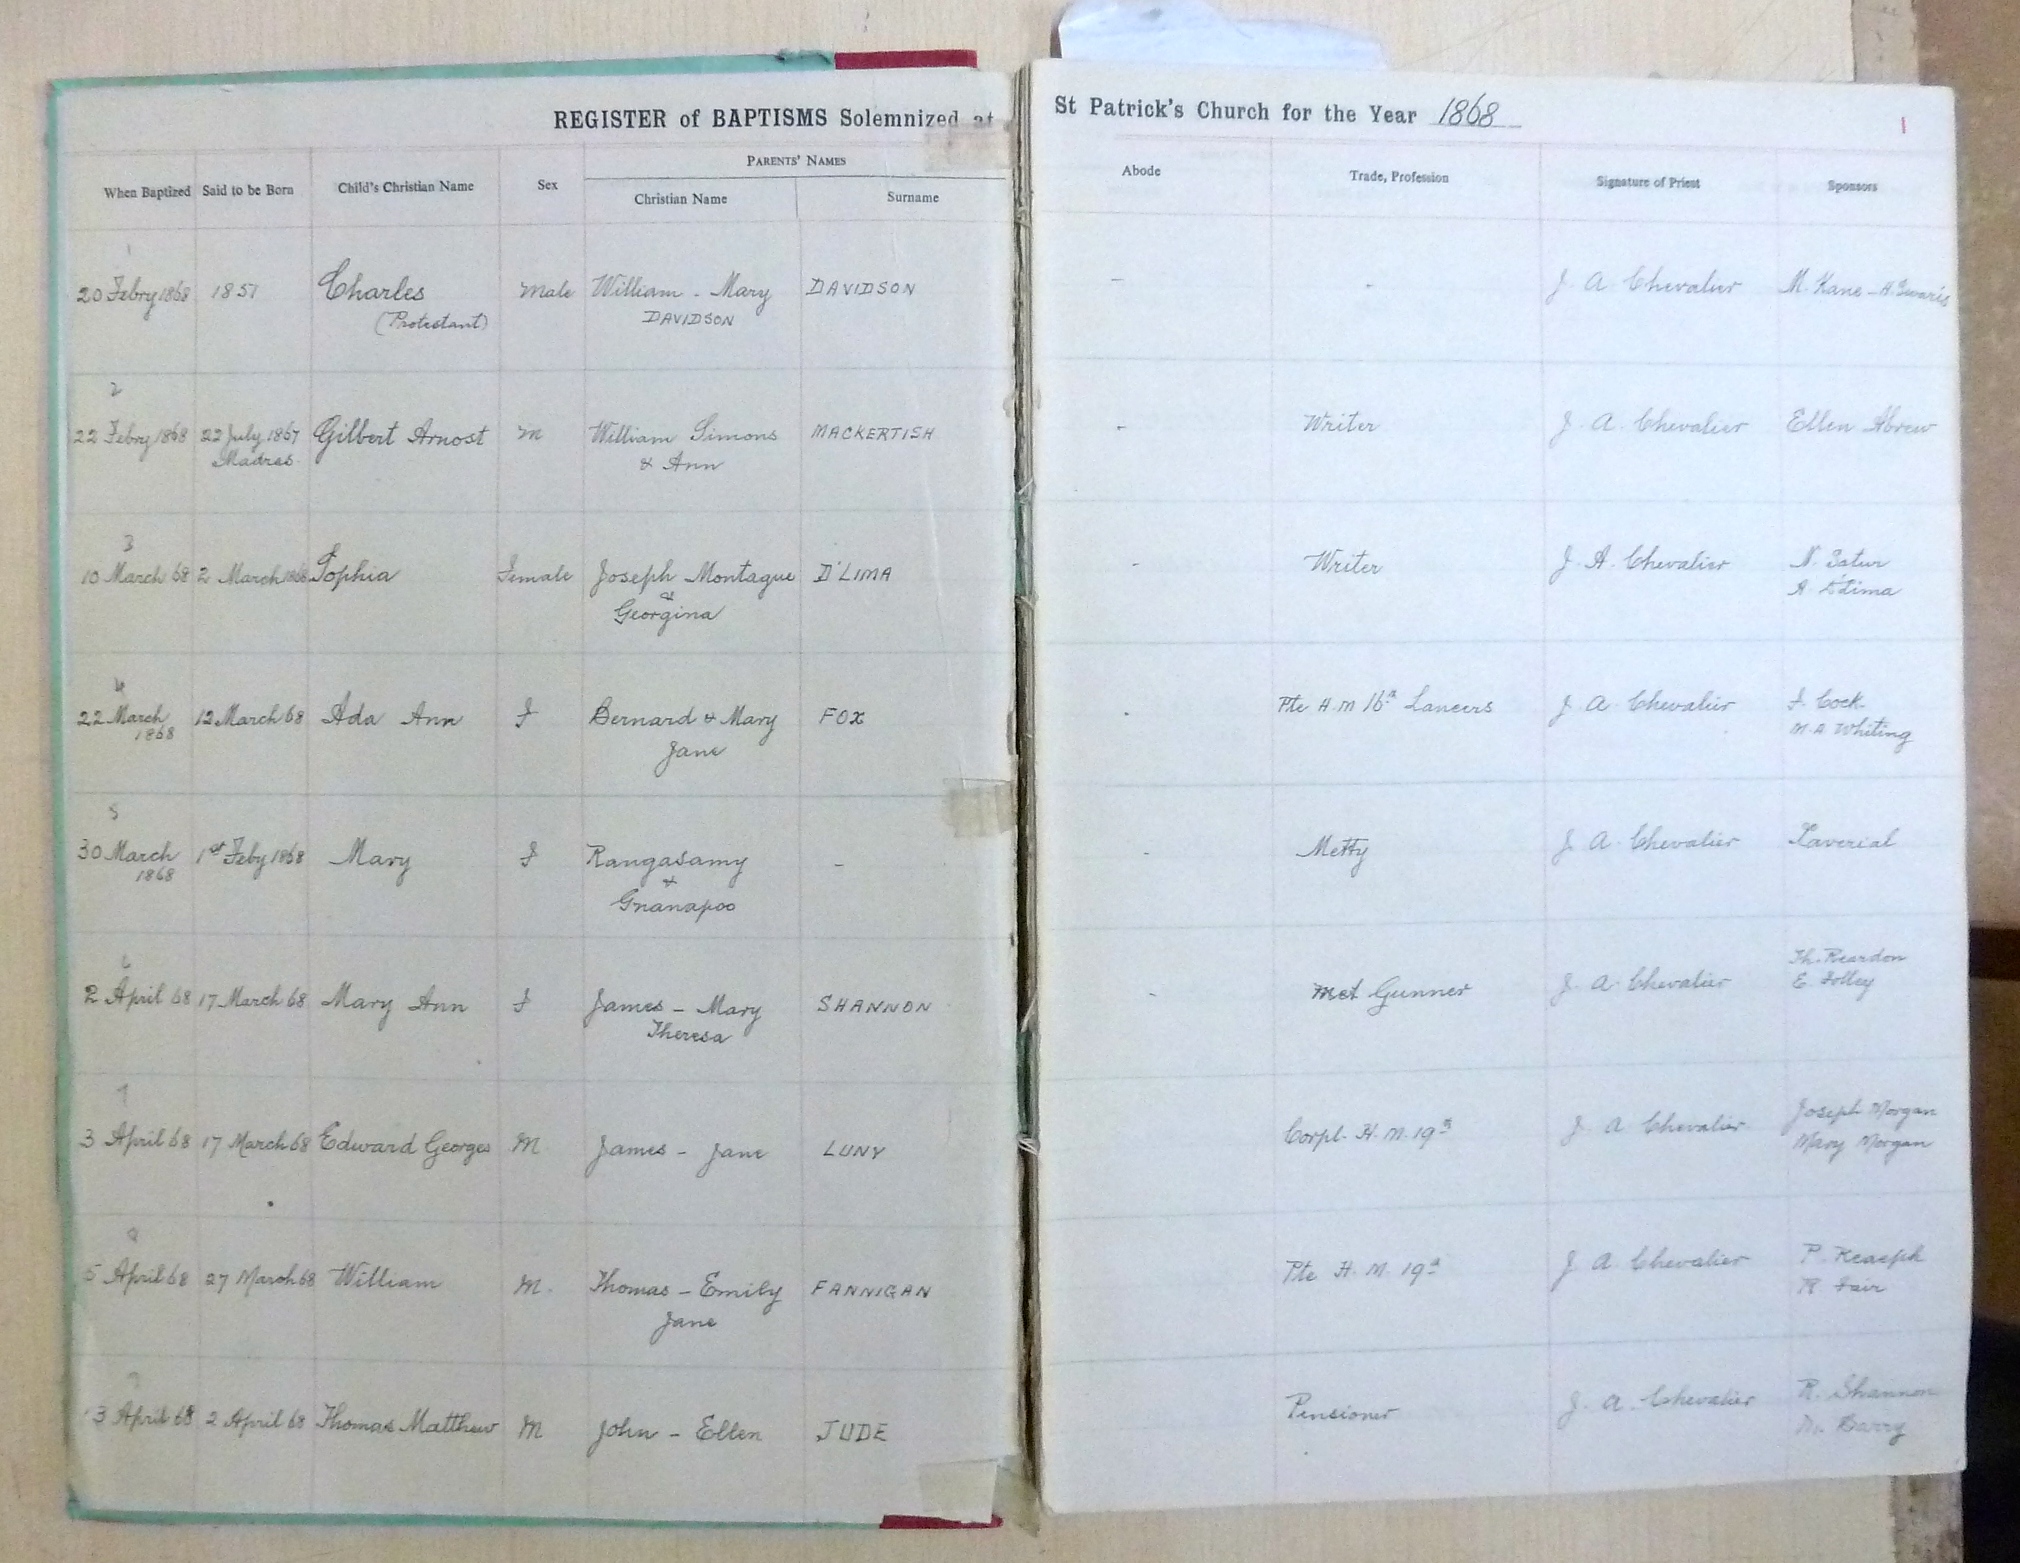 REGISTER of BAPTISMS Solemnized at St Patrick's Church for the Year 1868
1
When Baptized Said to be Born Child's Christian Name Sex PARENTS' NAMES Abode Trade, Profession Signature of Priest Sponsors
Christian Name Surname
1
20 Febry 1868 1857 Charles Male William - Mary DAVIDSON - - J. A. Chevalier M. Kane -
(Protestant) DAVIDSON
2
22 Febry 1868 22 July 1867 Gilbert Arnost M William Simons MACKERTISH - Writer J. A. Chevalier Ellen Abrew
Madras & Ann
3
10 March 68 2 March 1868 Sophia Female Joseph Montague D'LIMA - Writer J. A. Chevalier N.
& A. D'Lima
Georgina
4
22 March 12 March 68 Ada Ann F Bernard & Mary FOX - Pte H.M 16th Lancers J. A. Chevalier F. Cock
1868 Jane M.A Whiting
5
30 March 1st Feby 1868 Mary F Rangasamy - - Metty J. A. Chevalier Laverial
1868 &
Gnanapoo
6
2 April 68 17 March 68 Mary Ann F James - Mary SHANNON - Met Gunner J. A. Chevalier Th. Reardon
Theresa E. Folley
7
3 April 68 17 March 68 Edward Georges M James - Jane LUNY Corpl. H. M. 19th J. A. Chevalier Joseph Morgan
Mary Morgan
8
5 April 68 27 March 68 William M. Thomas - Emily FANNIGAN Pte H. M. 19th J. A. Chevalier P.
Jane R. Fair
9
13 April 68 2 April 68 Thomas Matthew M John - Ellen JUDE Pensioner J. A. Chevalier R. Shannon
M. Barry